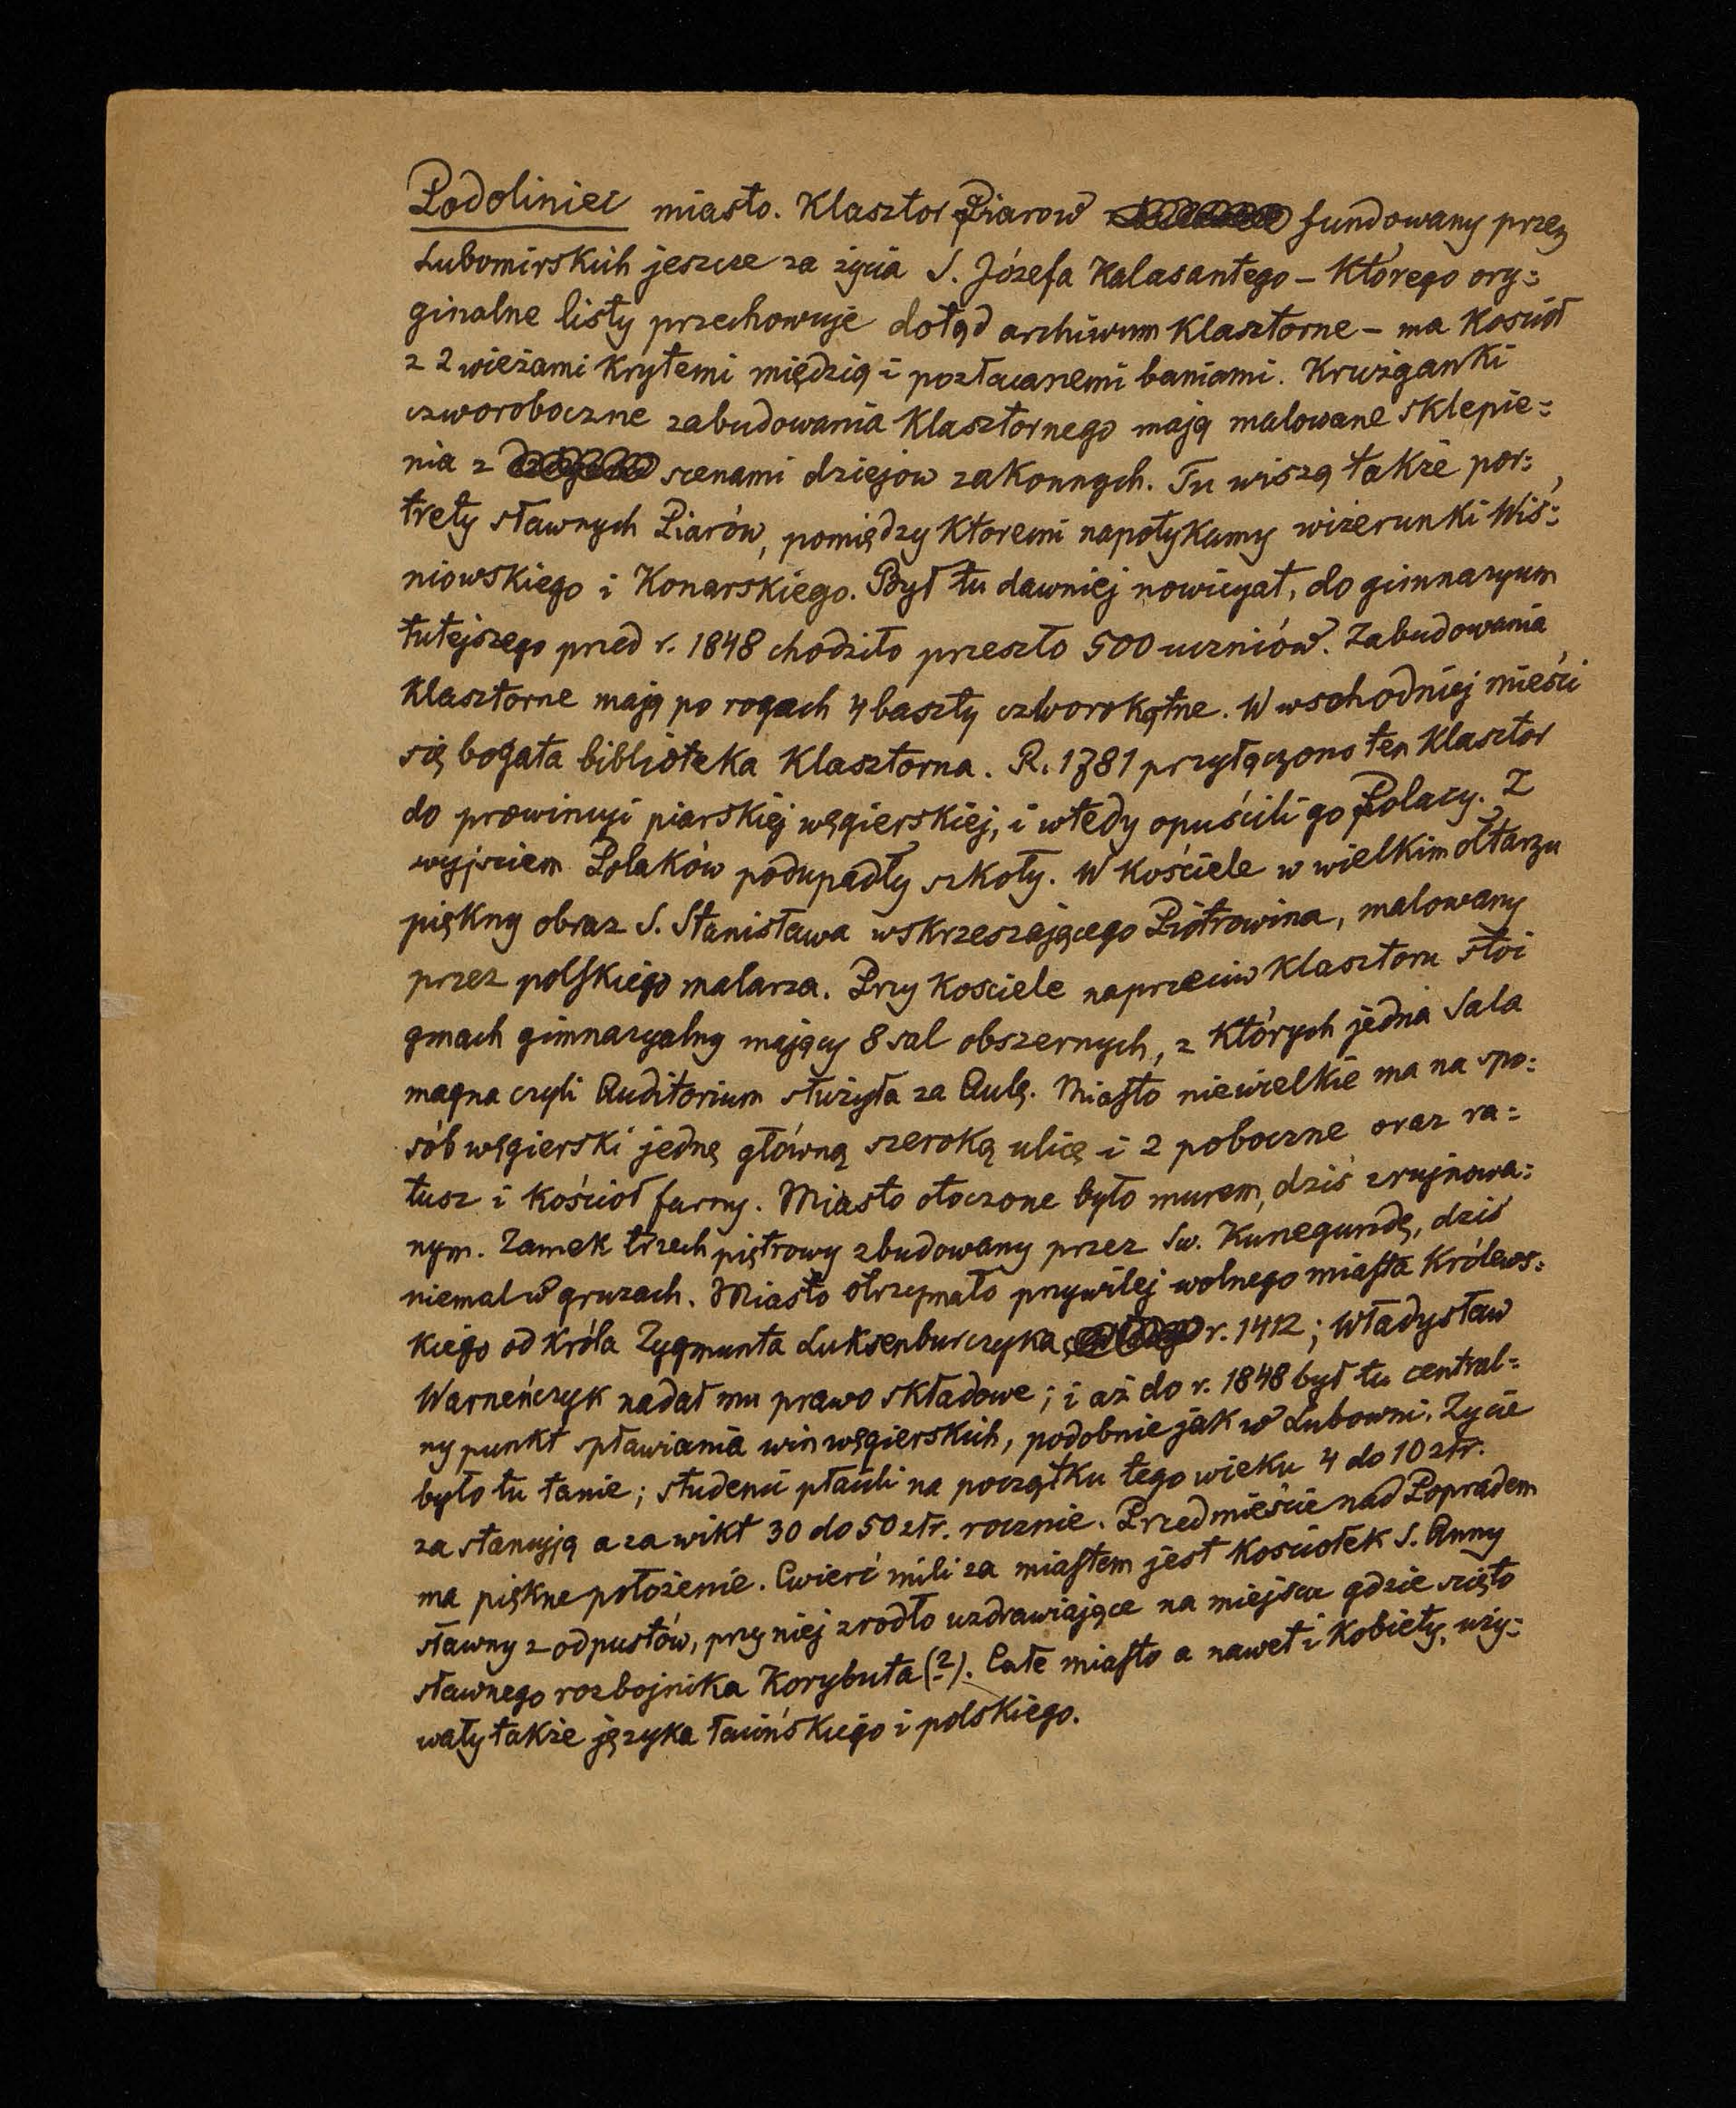 Podoliniec miasto. Klasztor Piarow fundowany przez
Lubomirskich jeszcze za życia S. Józefa Kalasantego – którego ory=
ginalne listy przechowuje dotąd archiwum klasztorne – ma kościół
z 2 wieżami krytemi miedzią i pozłacanemi baniami. Krużganki
czworoboczne zabudowania klasztornego mają malowane sklepie=
nia z scenami dziejow zakonnych. Tu wiszą także por=
trety sławnych Piarów, pomiędzy ktoremi napotykamy wizerunki Wiś=
niowskiego i Konarskiego. Był tu dawniej nowicyat, do gimnazyum
tutejszego przed r. 1848 chodziło przeszło 500 uczniów. Zabudowania
klasztorne mają po rogach 4 baszty czworokątne. W wschodniej mieści
się bogata biblioteka klasztorna. R. 1781 przyłączono ten klasztor
do prowincyi piarskiej węgierskiej, i wtedy opuścili go Polacy. Z
wyjściem Polaków podupadły szkoły. W kościele w wielkim ołtarzu
piękny obraz S. Stanisława wskrzeszającego Piotrowina, malowany
przez polskiego malarza. Przy kosciele naprzeciw klasztoru stoi
gmach gimnazyalny mający 8 sal obszernych, z których jedna Sala
magna czyli Auditorium służyła za Aulę. Miasto niewielkie ma na spo=
sób węgierski jedną główną szeroką ulicę i 2 poboczne oraz ra=
tusz i kościoł farny. Miasto otoczone było murem, dziś zrujnowa=
nym. Zamek trzech piętrowy zbudowany przez Sw. Kunegundę, dziś
niemal w gruzach. Miasto otrzymało przywilej wolnego miasta królews=
kiego od króla Zygmunta Luksenburczyka, r. 1412; Władysław
Warneńczyk nadał mu prawo składowe; i aż do r. 1848 był tu central=
ny punkt spławiania win węgierskich, podobnie jak w Lubowni. Zycie
było tu tanie; studenci płacili na początku tego wieku 4 do 10 złr.
za stancyją a za wikt 30 do 50 złr. rocznie. Przedmieście nad Popradem
ma piękne położenie. Cwierć mili za miastem jest kościołek S. Anny
sławny z odpustów, przy niej zrodło uzdrawiające na miejscu gdzie scięto
sławnego rozbojnika Korybuta (?). Całe miasto a nawet i kobiety, uży=
wały także języka łacińskiego i polskiego.